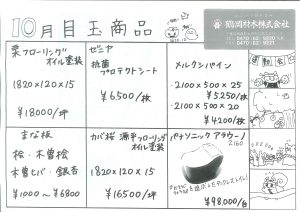 10月目玉商品
鶴岡材木株式会社
TEL 0470-62-0931
栗フローリング
オイル塗装
1820×120×15
¥18000/坪
ゼニヤ
抗菌
プロテクトシート
¥6500/枚
メルクシパイン
2100×500×25
¥5250/枚
2100×500×20
¥4200/枚
まな板
桧・木曽桧
木曽ヒバ・銀杏
¥1000~¥6800
カバ桜 源平フローリング
オイル塗装
1820×120×15
¥16500/坪
パナソニック アラウーノ
¥98000/台